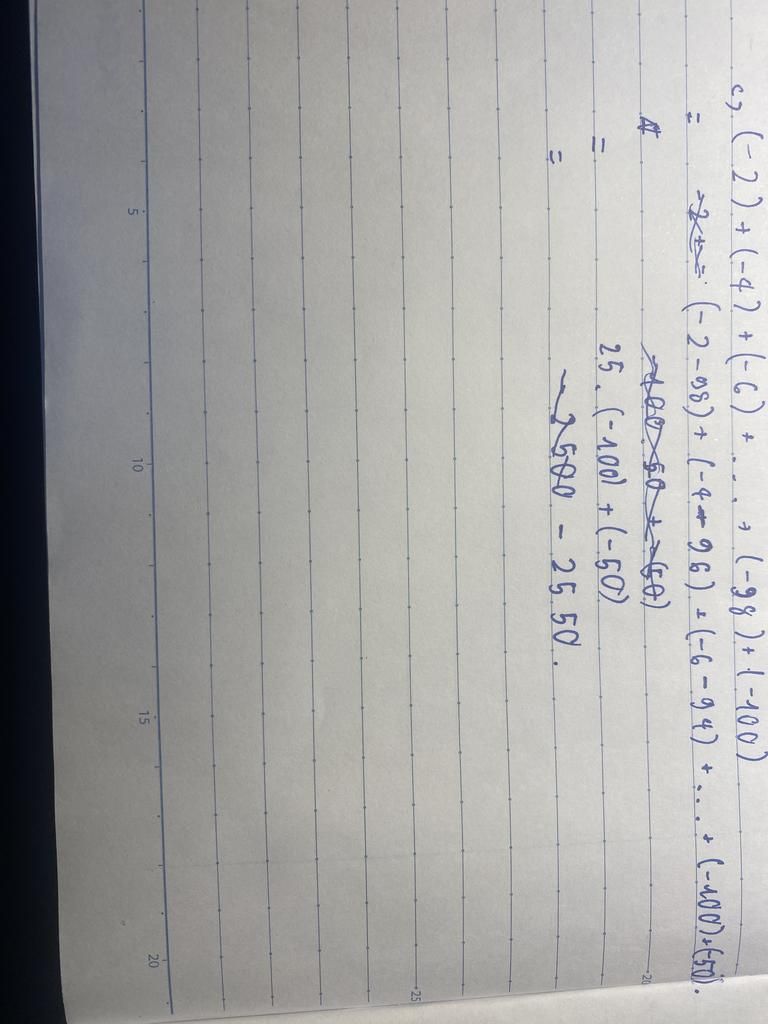 c) (-2) + (-4) + (-6) + ... + (-98) + (-100)
= (-2-98) + (-4-96) + (-6-94) + ... + (-100) + (-50).
-100.50 + -(50)
= 25. (-100) + (-50)
= -2500 - 2550.
5 10 15 20
20
25